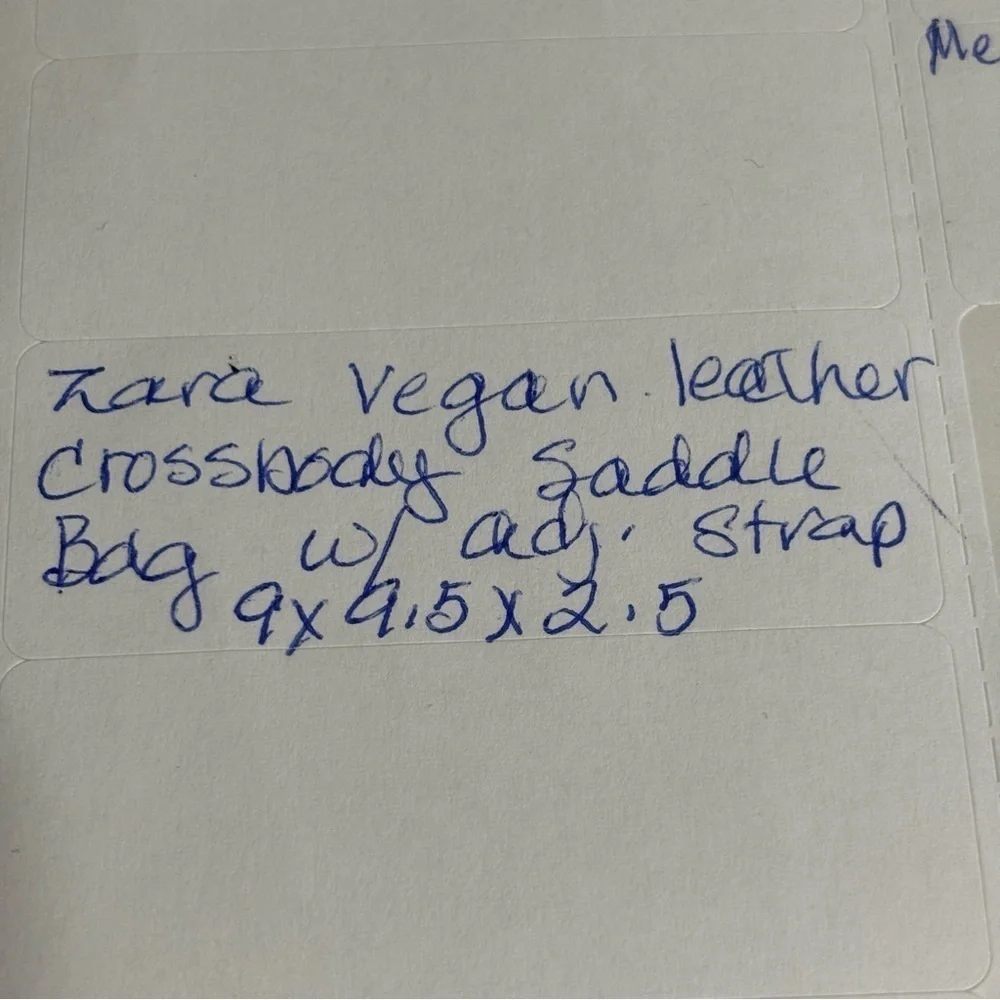 Me
Zara Vegan leather
Crossbody Saddle
Bag w/ adj. Strap
9x9.5x2.5